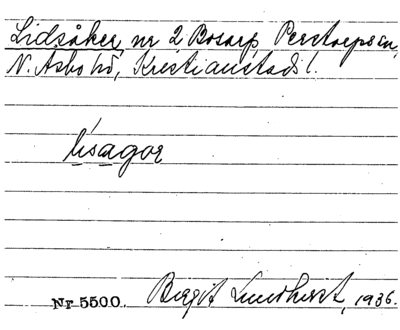 Lidsåker, nr 2 Bosarp, Perstorps sn,
N. Åsbo hd, Kristianstads l.
lisagor
Nr 5500. Birgit Lundkvist, 1936.